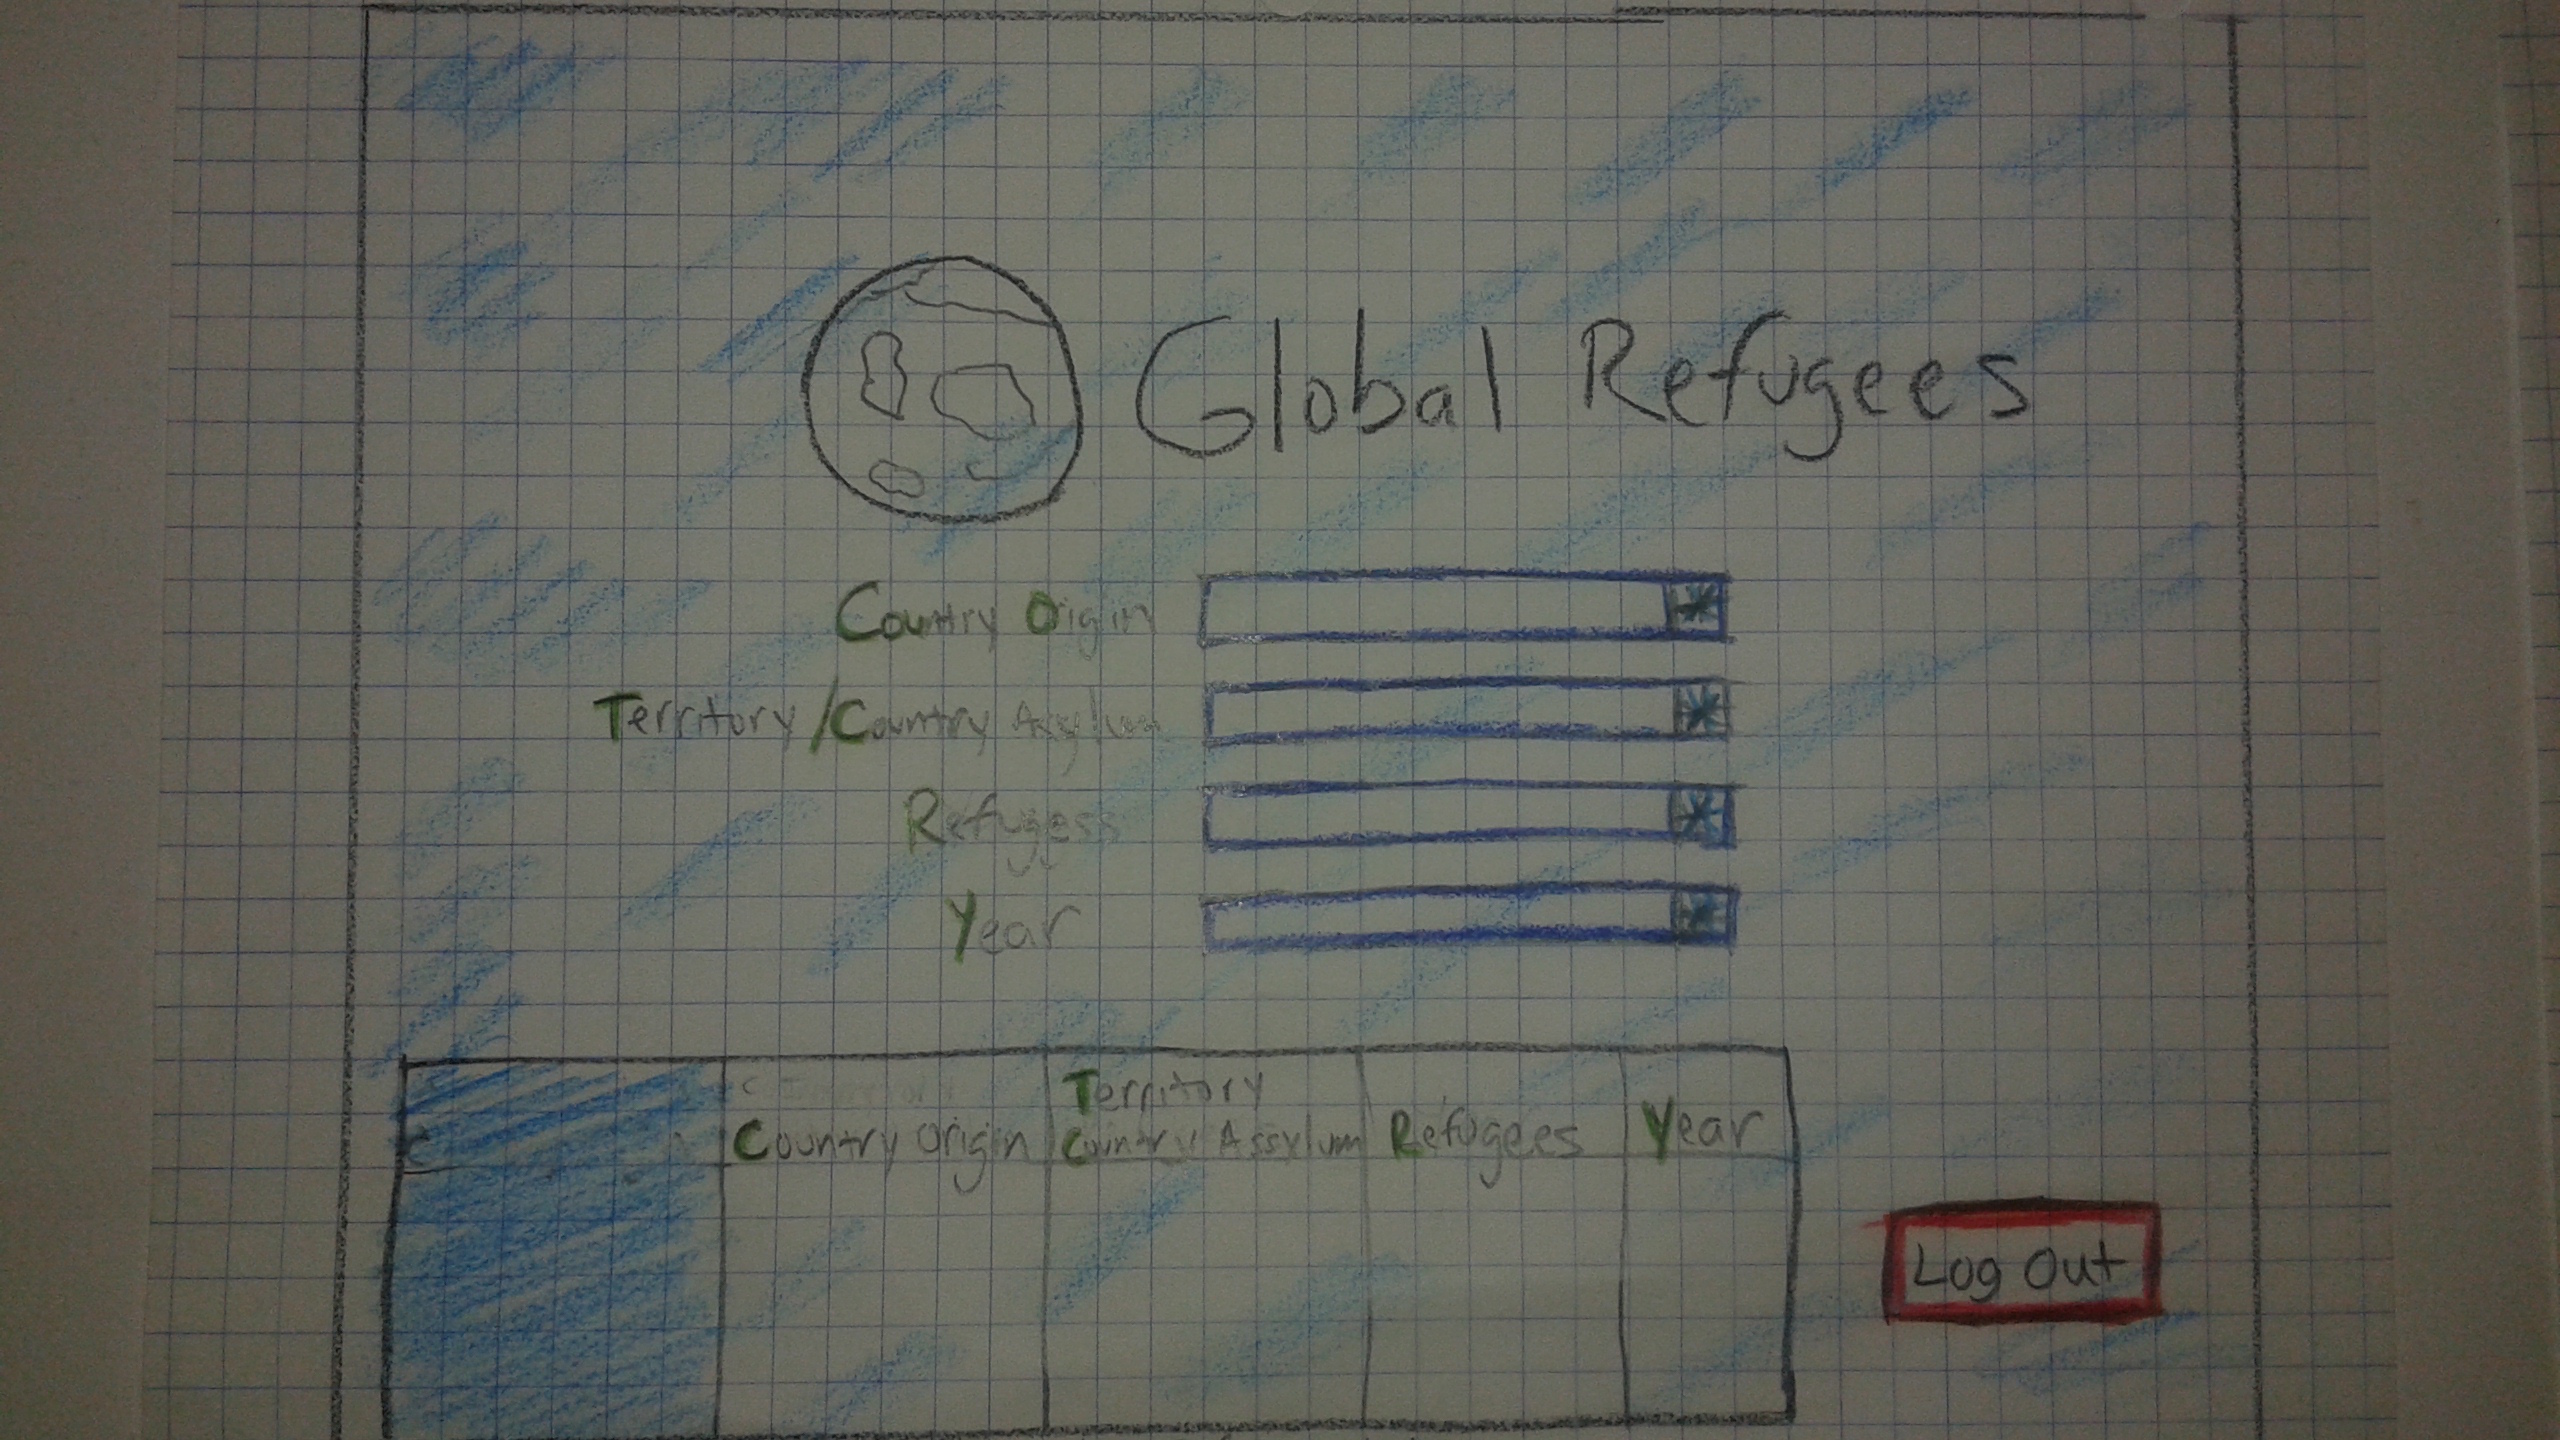 Global Refugees
Country Origin
Territory / Country Asylum
Refugess
Year
Territory
Country Origin
Country Assylum
Refugees
Year
Log Out